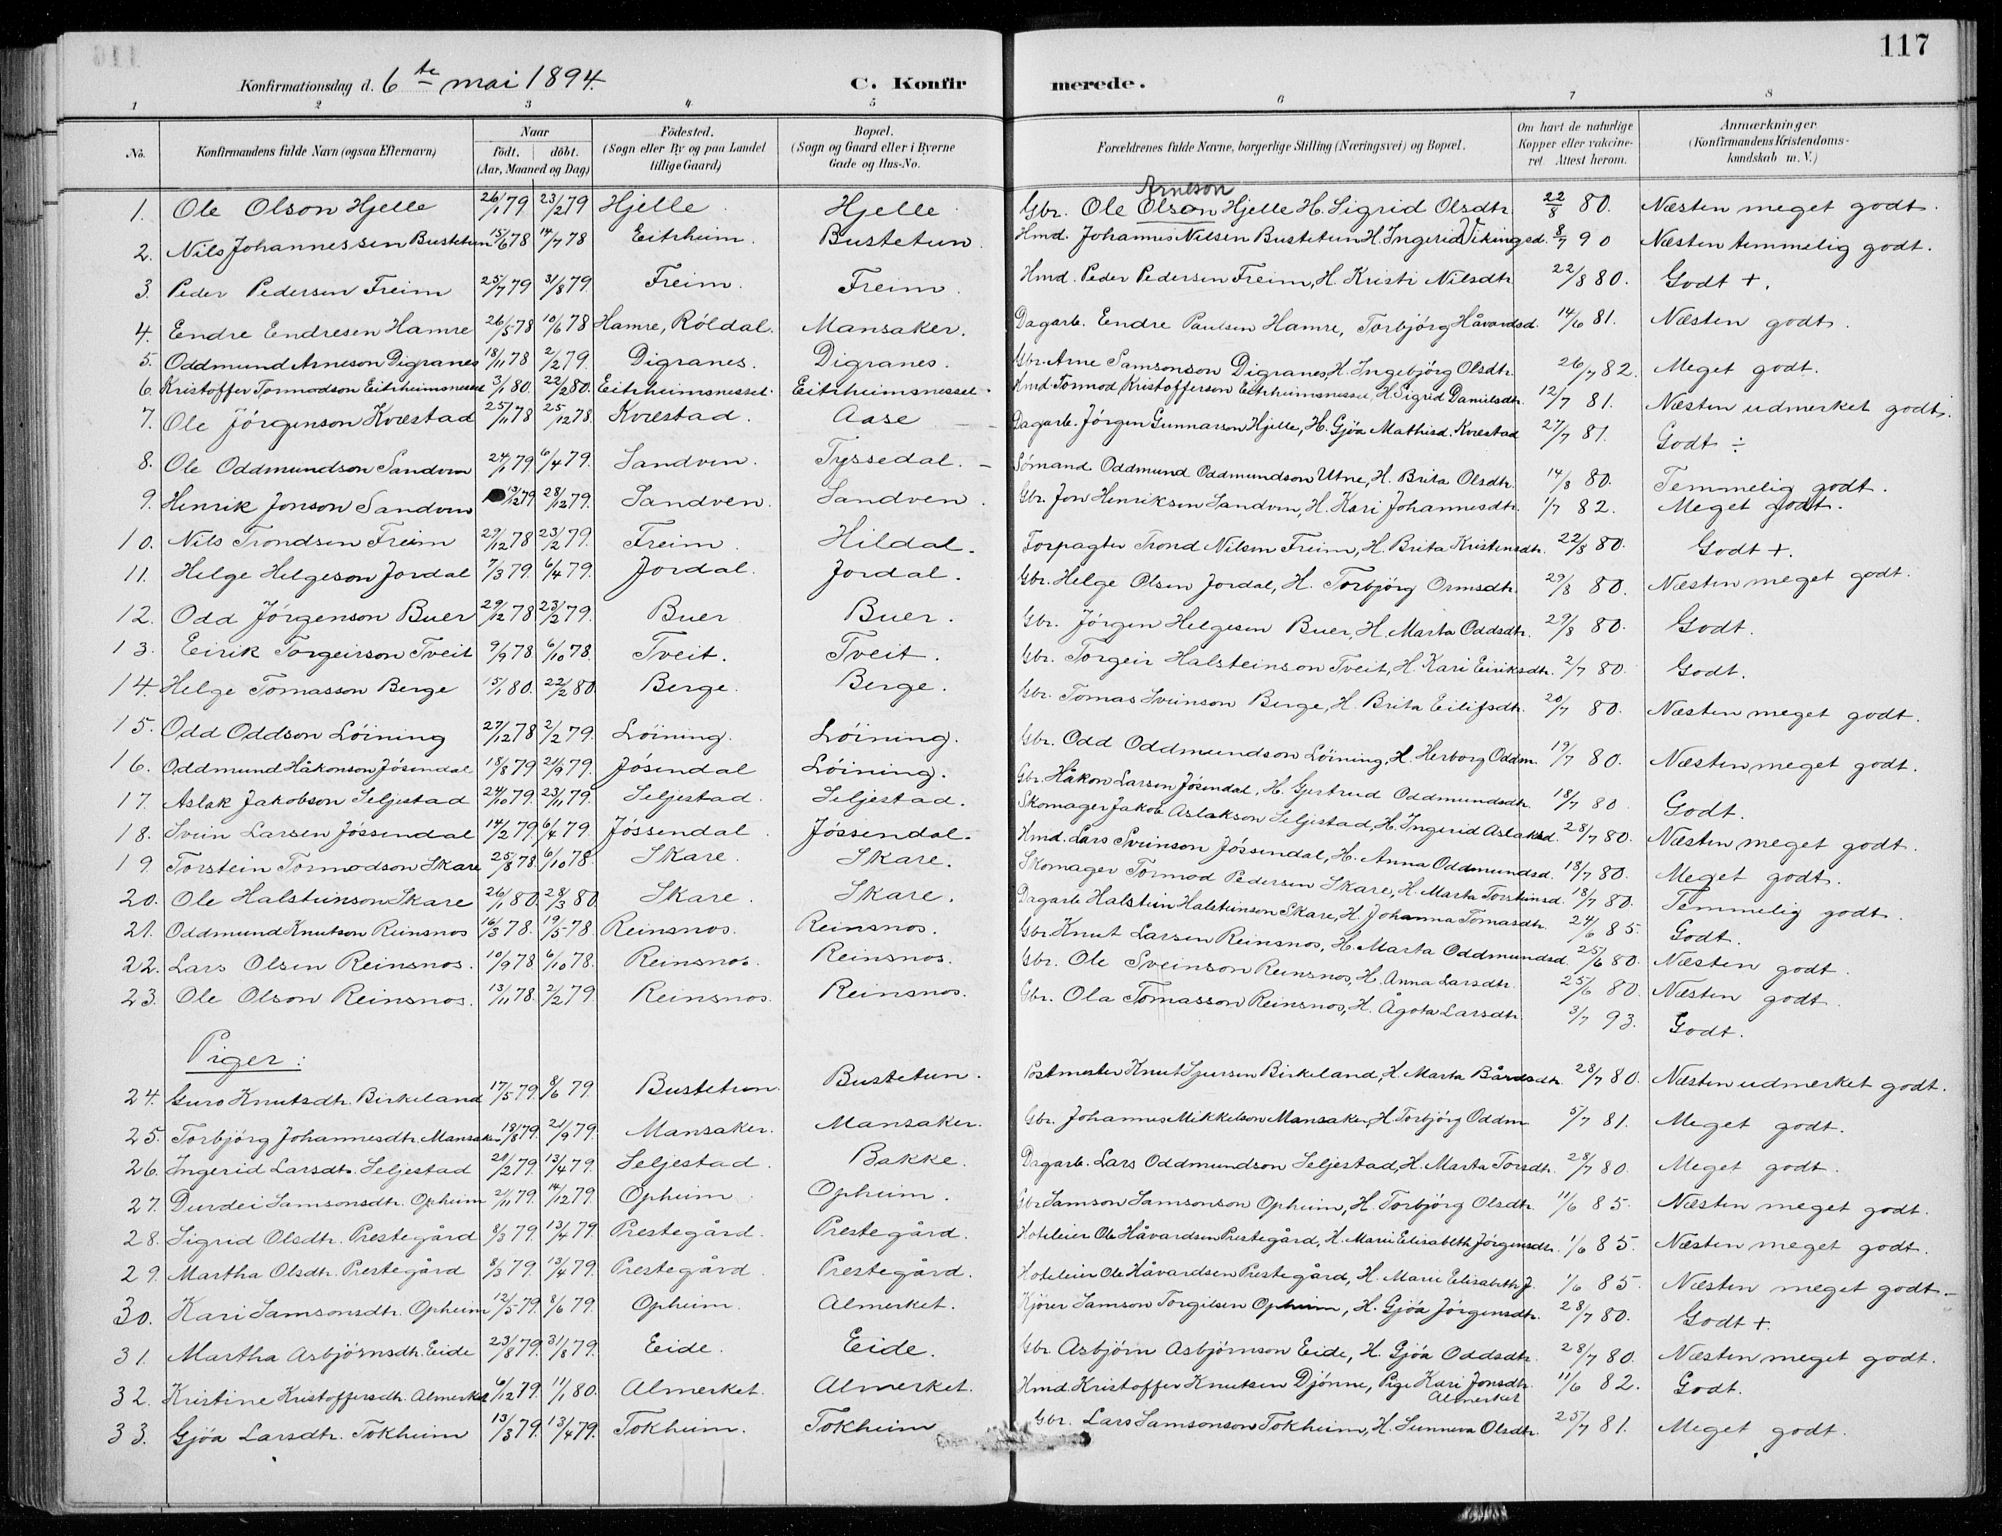 117
Konfirmationsdag d. 6te mai 1894.
C. Konfirmerede.
1 2 3 4 5 6 7 8
No. | Konfirmandens fulde Navn (ogsaa Efternavn) | Naar födt. döbt. (Aar, Maaned og Dag) | Födested. (Sogn eller By og paa Landet tillige Gaard) | Bopæl. (Sogn og Gaard eller i Byerne Gade og Hus-No. | Forældrenes fulde Navne, borgerlige Stilling (Næringsvei) og Bopæl. | Om havt de naturlige Kopper eller vakcineret. Attest herom. | Anmærkninger (Konfirmandens Kristendomskundskab m. V.)
1. Ole Olson Hjelle 26/1 79 23/2 79 Hjelle Hjelle Gbr. Ole Olson Arneson Hjelle H. Sigrid Olsdtr. 22/8 80. Næsten meget godt.
2. Nils Johannessen Bustetun 15/6 78 14/7 78 Eitrheim. Bustetun. Hmd. Johannes Nilsen Bustetun H. Ingerid Vikingsd. 8/7 90 Næsten temmelig godt.
3. Peder Pedersen Freim 25/7 79 31/8 79. Freim. Freim. Hmd. Peder Pedersen Freim, H. Kristi Nilsdtr 22/8 80. Godt +.
4. Endre Endresen Hamre 26/5 78 10/6 78 Hamre, Röldal. Mansaker. Dagarb. Endre Paulsen Hamre, Torbjörg Håvardsd. 14/6 81. Næsten godt.
5. Oddmund Arneson Digranes 18/11 78 2/2 79. Digranes. Digranes. Gbr. Arne Samsonson Digranes, H. Ingebjörg Olsdtr. 26/7 82. Meget godt.
6. Kristoffer Tormodson Eitrheimsnesset 3/1 80. 22/2 80. Eitrheimsnesset. Eitrheimsnesset. Hmd. Tormod Kristofferson Eitrheimsnesset, H. Sigrid Danielsdtr. 12/7 81. Næsten udmerket godt.
7. Ole Jörgenson Kvæstad 25/11 78 25/12 78. Kvæstad. Aase Dagarb. Jörgen Gunnarson Hjelle, H. Gjöa Mathisd. Kvæstad 27/7 81. Godt ÷
8. Ole Oddmundson Sandven 24/1 79. 6/4 79. Sandven. Tyssedal. Sömand Oddmund Oddmundson Utne, H. Brita Olsdtr. 14/8 80. Temmelig godt.
9. Henrik Jonson Sandven 13/12 79 28/12 79. Sandven Sandven. Gbr. Jon Henriksen Sandven, H. Kari Johannesdtr. 1/7 82. Meget godt.
10. Nils Trondsen Freim 29/12 78 23/2 79. Freim. Hildal. Forpagter Trond Nilsen Freim, H. Brita Kristensdtr. 22/8 80. Godt +.
11. Helge Helgeson Jordal 7/3 79. 6/4 79. Jordal. Jordal. Gbr. Helge Olsen Jordal, H. Torbjörg Ormsdtr. 29/8 80. Næsten meget godt.
12. Odd Jörgenson Buer 29/12 78 23/2 79. Buer Buer. Gbr. Jörgen Helgesen Buer, H. Marta Oddsdtr. 29/8 80. Godt.
13. Eirik Torgeirson Tveit 9/9 78 6/10 78. Tveit. Tveit. Gbr. Torgeir Halsteinson Tveit, H. Kari Eiriksdtr. 2/7 80. Godt.
14. Helge Tomasson Berge 15/1 80. 22/2 80 Berge. Berge. Gbr. Tomas Sveinson Berge, H. Brita Eilifsdtr. 20/7 80. Næsten meget godt.
15. Odd Oddson Löining 27/12 78 2/2 79. Löining. Löining. Gbr. Odd Oddmundson Löining, H. Herborg Oddm. 19/7 80. Næsten meget godt.
16. Oddmund Håkonson Jösendal 18/8 79 21/9 79. Jösendal Löining. Gbr. Håkon Larsen Jösendal, H. Gjertrud Oddmundsdtr. 18/7 80. Godt.
17. Aslak Jakobson Seljestad 24/10 79 23/11 79. Seljestad. Seljestad. Skomager Jakob Aslakson Seljestad, H. Ingerid Aslaksd. 28/7 80. Næsten meget godt.
18. Svein Larsen Jössendal 14/2 79 6/4 79. Jössendal. Jössendal. Hmd. Lars Sveinson Jössendal, H. Anna Oddmundsd. 18/7 80. Meget godt.
19. Torstein Tormodson Skare 25/8 78. 6/10 78. Skare. Skare. Skomager Tormod Pedersen Skare, H. Marta Torsteinsd. 18/7 80. Temmelig godt.
20. Ole Halsteinson Skare 26/1 80. 28/3 80 Skare. Skare. Dagarb Halstein Halsteinson Skare, H. Johanna Tomasdtr. 24/6 85. Godt.
21. Oddmund Knutson Reinsnos 16/3 78. 19/5 78 Reinsnos. Reinsnos. Gbr. Knut Larsen Reinsnos, H. Marta Oddmundsd 25/6 80. Næsten godt.
22. Lars Olsen Reinsnos. 10/9 78 6/10 78. Reinsnos. Reinsnos. Gbr. Ole Sveinson Reinsnos, H. Anna Larsdtr. 25/6 80. Næsten godt.
23. Ole Olson Reinsnos. 13/11 78. 2/2 79. Reinsnos. Reinsnos. Gbr. Ola Tomasson Reinsnos, H. Ågota Larsdtr. 3/7 93. Godt.
Piger:
24. Guro Knutsdtr. Birkeland 17/5 79. 8/6 79. Bustetun. Bustetun. Postmester Knut Sjursen Birkeland, H. Marta Bårdsdtr. 28/7 80. Næsten udmerket godt.
25. Torbjörg Johannesdtr. Mansaker 18/8 79. 21/9 79. Mansaker. Mansaker. Gbr. Johannes Mikkelson Mansaker, H. Torbjörg Oddm 5/7 81. Meget godt.
26. Ingerid Larsdtr. Seljestad 21/2 79. 13/4 79. Seljestad. Bakke. Dagarb. Lars Oddmundson Seljestad, H. Marta Torsdtr. 28/7 80. Meget godt.
27. Durdei Samsonsdtr. Opheim 2/11 79. 14/12 79. Opheim Opheim. Gbr. Samson Samsonson Opheim, H. Torbjörg Olsdtr. 11/6 85. Næsten meget godt.
28. Sigrid Olsdtr. Prestegård 8/3 79. 13/4 79. Prestegård. Prestegård. Hoteleier Ole Håvardsen Prestegård, H. Marie Elisabeth Jörgensdtr. 1/6 85. Næsten meget godt.
29. Martha Olsdtr. Prestegård 8/3 79. 13/4 79. Prestegård. Prestegård. Hoteleier Ole Håvardsen Prestegård, H. Marie Elisabeth J. 1/6 85. Næsten meget godt.
30. Kari Samsonsdtr. Opheim 12/5 79. 8/6 79. Opheim. Almerket. Kjörer Samson Torgilsen Opheim, H. Gjöa Jörgensdtr. 28/7 80. Godt +.
31. Martha Asbjörnsdtr. Eide 23/8 79. 31/8 79. Eide. Eide. Gbr. Asbjörn Asbjörnson Eide, H. Gjöa Oddsdtr. 28/7 80. Næsten meget godt.
32. Kristine Kristoffersdtr. Almerket 6/12 79. 11/1 80. Almerket. Almerket. Hmd. Kristoffer Knutsen Djönne, Pige Kari Jonsdtr. Almerket 11/6 82. Godt.
33. Gjöa Larsdtr. Tokheim 13/3 79. 13/4 79. Tokheim. Tokheim Gbr. Lars Samsonson Tokheim, H. Sunneva Olsdtr. 25/7 81. Meget godt.